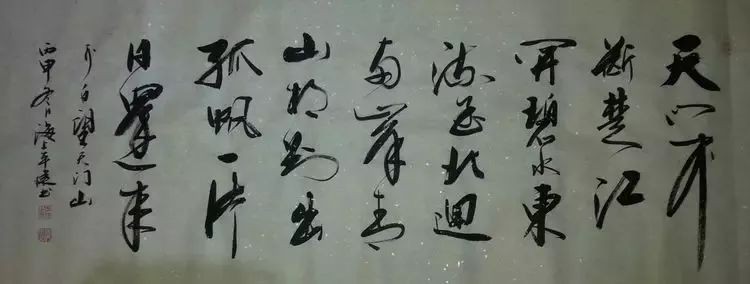 天门中
断楚江
開碧水東
流至北迴
两岸青
山相對出
孤帆一片
日邊来
李白望天门山
丙申冬日海上书